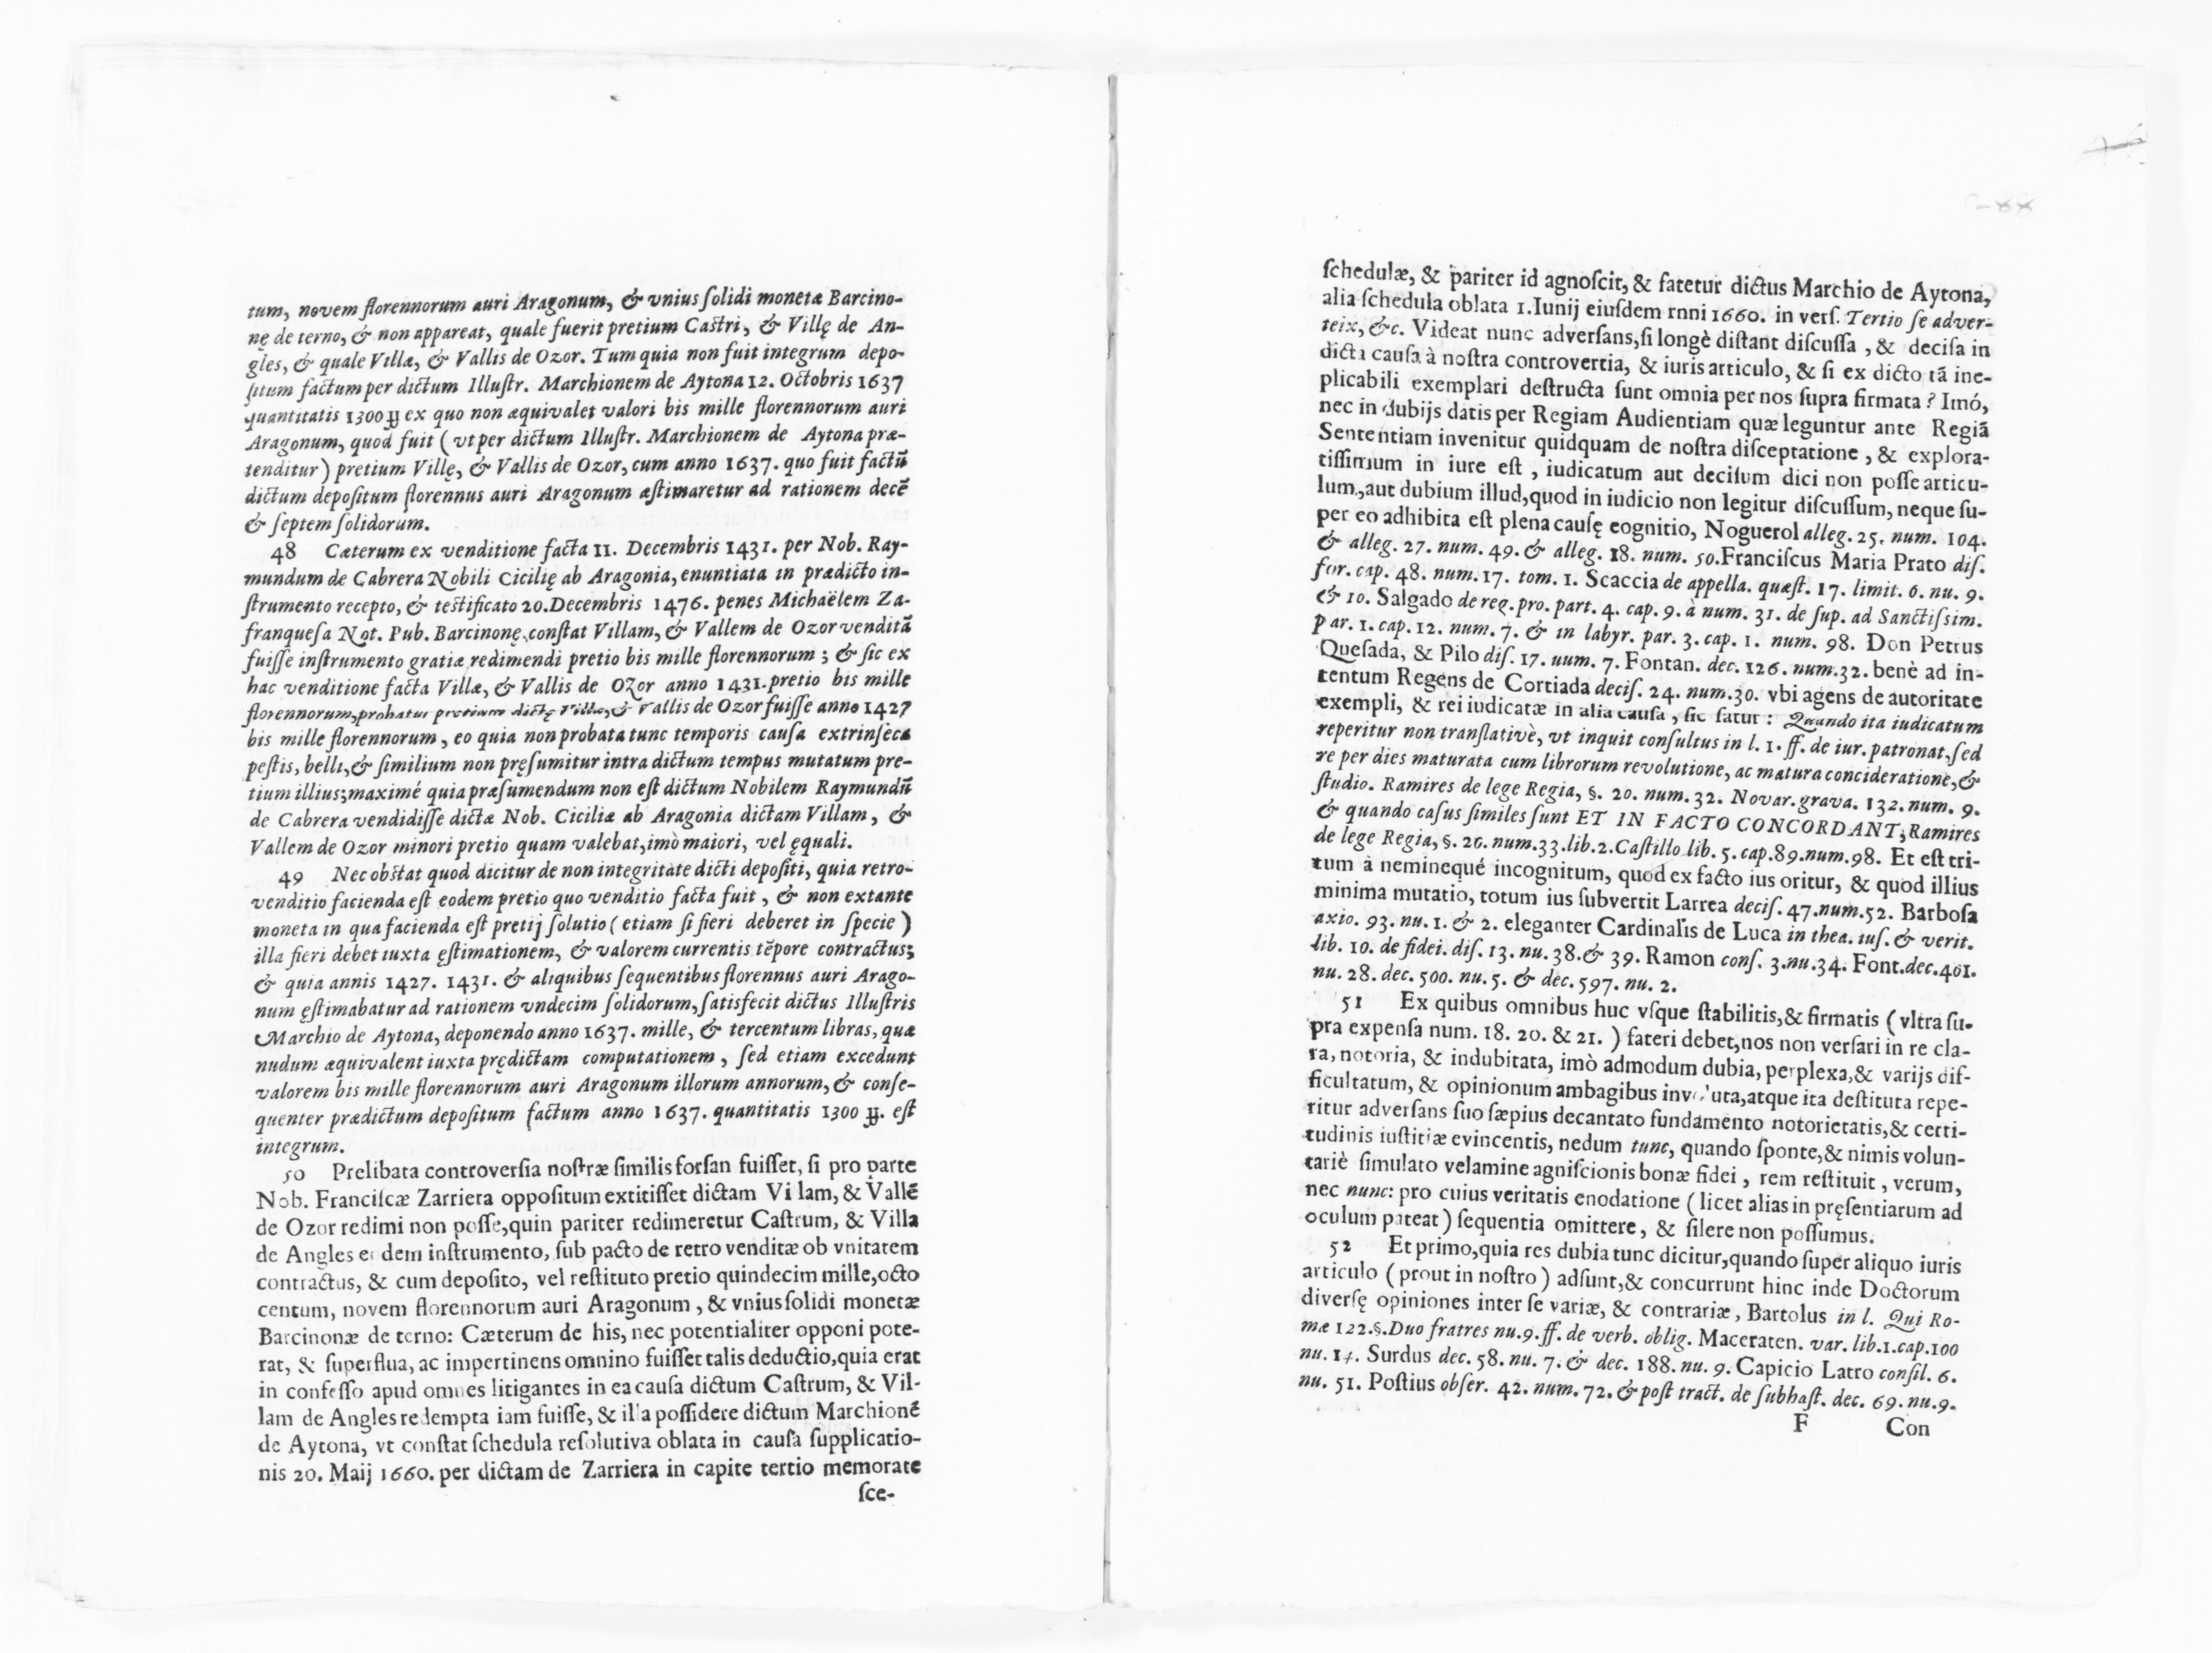 tum, novem florennorum auri Aragonum, & vnius ſolidi monetæ Barcino-
nę de terno, & non appareat, quale fuerit pretium Caſtri, & Villę de An-
gles, & quale Villæ, & Vallis de Ozor. Tum quia non fuit integrum depo-
ſitum factum per dictum Illuſtr. Marchionem de Aytona 12. Octobris 1637
quantitatis 1300 ₶ ex quo non æquivalet valori bis mille florennorum auri
Aragonum, quod fuit (vt per dictum Illuſtr. Marchionem de Aytona præ-
tenditur) pretium Villę, & Vallis de Ozor, cum anno 1637. quo fuit factũ
dictum depoſitum florennus auri Aragonum æſtimaretur ad rationem decẽ
& ſeptem ſolidorum.
48 Cæterum ex venditione facta 11. Decembris 1431. per Nob. Ray-
mundum de Cabrera Nobili Cicilię ab Aragonia, enuntiata in prædicto in-
ſtrumento recepto, & teſtificato 20. Decembris 1476. penes Michaëlem Za-
franqueſa Not. Pub. Barcinonę, conſtat Villam, & Vallem de Ozor venditã
fuiſſe inſtrumento gratiæ redimendi pretio bis mille florennorum ; & ſic ex
hac venditione facta Villæ, & Vallis de Ozor anno 1431. pretio bis mille
florennorum, probatur pretium dictę Villę, & Vallis de Ozor fuiſſe anno 1427
bis mille florennorum, eo quia non probata tunc temporis cauſa extrinſeca
peſtis, belli, & ſimilium non pręſumitur intra dictum tempus mutatum pre-
tium illius; maximé quia præſumendum non eſt dictum Nobilem Raymundũ
de Cabrera vendidiſſe dictæ Nob. Ciciliæ ab Aragonia dictam Villam, &
Vallem de Ozor minori pretio quam valebat, imò maiori, vel ęquali.
49 Nec obſtat quod dicitur de non integritate dicti depoſiti, quia retro-
venditio facienda eſt eodem pretio quo venditio facta fuit, & non extante
moneta in qua facienda eſt pretij ſolutio (etiam ſi fieri deberet in ſpecie)
illa fieri debet iuxta ęſtimationem, & valorem currentis tẽpore contractus;
& quia annis 1427. 1431. & aliquibus ſequentibus florennus auri Arago-
num ęſtimabatur ad rationem vndecim ſolidorum, ſatisfecit dictus Illuſtris
Marchio de Aytona, deponendo anno 1637. mille, & tercentum libras, quæ
nudum æquivalent iuxta prędictam computationem, ſed etiam excedunt
valorem bis mille florennorum auri Aragonum illorum annorum, & conſe-
quenter prædictum depoſitum factum anno 1637. quantitatis 1300 ₶. eſt
integrum.
50 Prelibata controverſia noſtræ ſimilis forſan fuiſſet, ſi pro parte
Nob. Franciſcæ Zarriera oppoſitum extitiſſet dictam Vi lam, & Vallẽ
de Ozor redimi non poſſe, quin pariter redimeretur Caſtrum, & Villa
de Angles e dem inſtrumento, ſub pacto de retro venditæ ob vnitatem
contractus, & cum depoſito, vel reſtituto pretio quindecim mille, octo
centum, novem florennorum auri Aragonum, & vnius ſolidi monetæ
Barcinonæ de terno: Cæterum de his, nec potentialiter opponi pote-
rat, & ſuperflua, ac impertinens omnino fuiſſet talis deductio, quia erat
in confeſſo apud omnes litigantes in ea cauſa dictum Caſtrum, & Vil-
lam de Angles redempta iam fuiſſe, & illa poſſidere dictum Marchionẽ
de Aytona, vt conſtat ſchedula reſolutiva oblata in cauſa ſupplicatio-
nis 20. Maij 1660. per dictam de Zarriera in capite tertio memorate
ſce-
288
ſchedulæ, & pariter id agnoſcit, & fatetur dictus Marchio de Aytona,
alia ſchedula oblata 1. Iunij eiuſdem rnni 1660. in verſ. Tertio ſe adver-
teix, &c. Videat nunc adverſans, ſi longè diſtant diſcuſſa, & deciſa in
dicta cauſa à noſtra controvertia, & iuris articulo, & ſi ex dicto tã ine-
plicabili exemplari deſtructa ſunt omnia per nos ſupra firmata ? Imó,
nec in dubijs datis per Regiam Audientiam quæ leguntur ante Regiã
Sententiam invenitur quidquam de noſtra diſceptatione, & explora-
tiſſimum in iure eſt, iudicatum aut deciſum dici non poſſe articu-
lum, aut dubium illud, quod in iudicio non legitur diſcuſſum, neque ſu-
per eo adhibita eſt plena cauſę eognitio, Noguerol alleg. 25. num. 104.
& alleg. 27. num. 49. & alleg. 18. num. 50. Franciſcus Maria Prato diſ.
for. cap. 48. num. 17. tom. 1. Scaccia de appella. quæſt. 17. limit. 6. nu. 9.
& 10. Salgado de reg. pro. part. 4. cap. 9. à num. 31. de ſup. ad Sanctiſsim.
par. 1. cap. 12. num. 7. & in labyr. par. 3. cap. 1. num. 98. Don Petrus
Queſada, & Pilo diſ. 17. uum. 7. Fontan. dec. 126. num. 32. benè ad in-
tentum Regens de Cortiada deciſ. 24. num. 30. vbi agens de autoritate
exempli, & rei iudicatæ in alia cauſa, ſic fatur : Quando ita iudicatum
reperitur non tranſlativè, vt inquit conſultus in l. 1. ff. de iur. patronat, ſed
re per dies maturata cum librorum revolutione, ac matura concideratione, &
ſtudio. Ramires de lege Regia, §. 20. num. 32. Novar. grava. 132. num. 9.
& quando caſus ſimiles ſunt ET IN FACTO CONCORDANT; Ramires
de lege Regia, §. 20. num. 33. lib. 2. Caſtillo lib. 5. cap. 89. num. 98. Et eſt tri-
tum à neminequé incognitum, quod ex facto ius oritur, & quod illius
minima mutatio, totum ius ſubvertit Larrea deciſ. 47. num. 52. Barboſa
axio. 93. nu. 1. & 2. eleganter Cardinalis de Luca in thea. iuſ. & verit.
lib. 10. de fidei. diſ. 13. nu. 38. & 39. Ramon conſ. 3. nu. 34. Font. dec. 401.
nu. 28. dec. 500. nu. 5. & dec. 597. nu. 2.
51 Ex quibus omnibus huc vſque ſtabilitis, & firmatis (vltra ſu-
pra expenſa num. 18. 20. & 21. ) fateri debet, nos non verſari in re cla-
ra, notoria, & indubitata, imò admodum dubia, perplexa, & varijs dif-
ficultatum, & opinionum ambagibus inv uta, atque ita deſtituta repe-
ritur adverſans ſuo ſæpius decantato fundamento notorietatis, & certi-
tudinis iuſtitiæ evincentis, nedum tunc, quando ſponte, & nimis volun-
tariè ſimulato velamine agniſcionis bonæ fidei, rem reſtituit, verum,
nec nunc: pro cuius veritatis enodatione (licet alias in pręſentiarum ad
oculum pateat) ſequentia omittere, & ſilere non poſſumus.
52 Et primo, quia res dubia tunc dicitur, quando ſuper aliquo iuris
articulo (prout in noſtro) adſunt, & concurrunt hinc inde Doctorum
diverſę opiniones inter ſe variæ, & contrariæ, Bartolus in l. Qui Ro-
mæ 122. §. Duo fratres nu. 9. ff. de verb. oblig. Maceraten. var. lib. 1. cap. 100
nu. 14. Surdus dec. 58. nu. 7. & dec. 188. nu. 9. Capicio Latro conſil. 6.
nu. 51. Poſtius obſer. 42. num. 72. & poſt tract. de ſubhaſt. dec. 69. nu. 9.
F Con